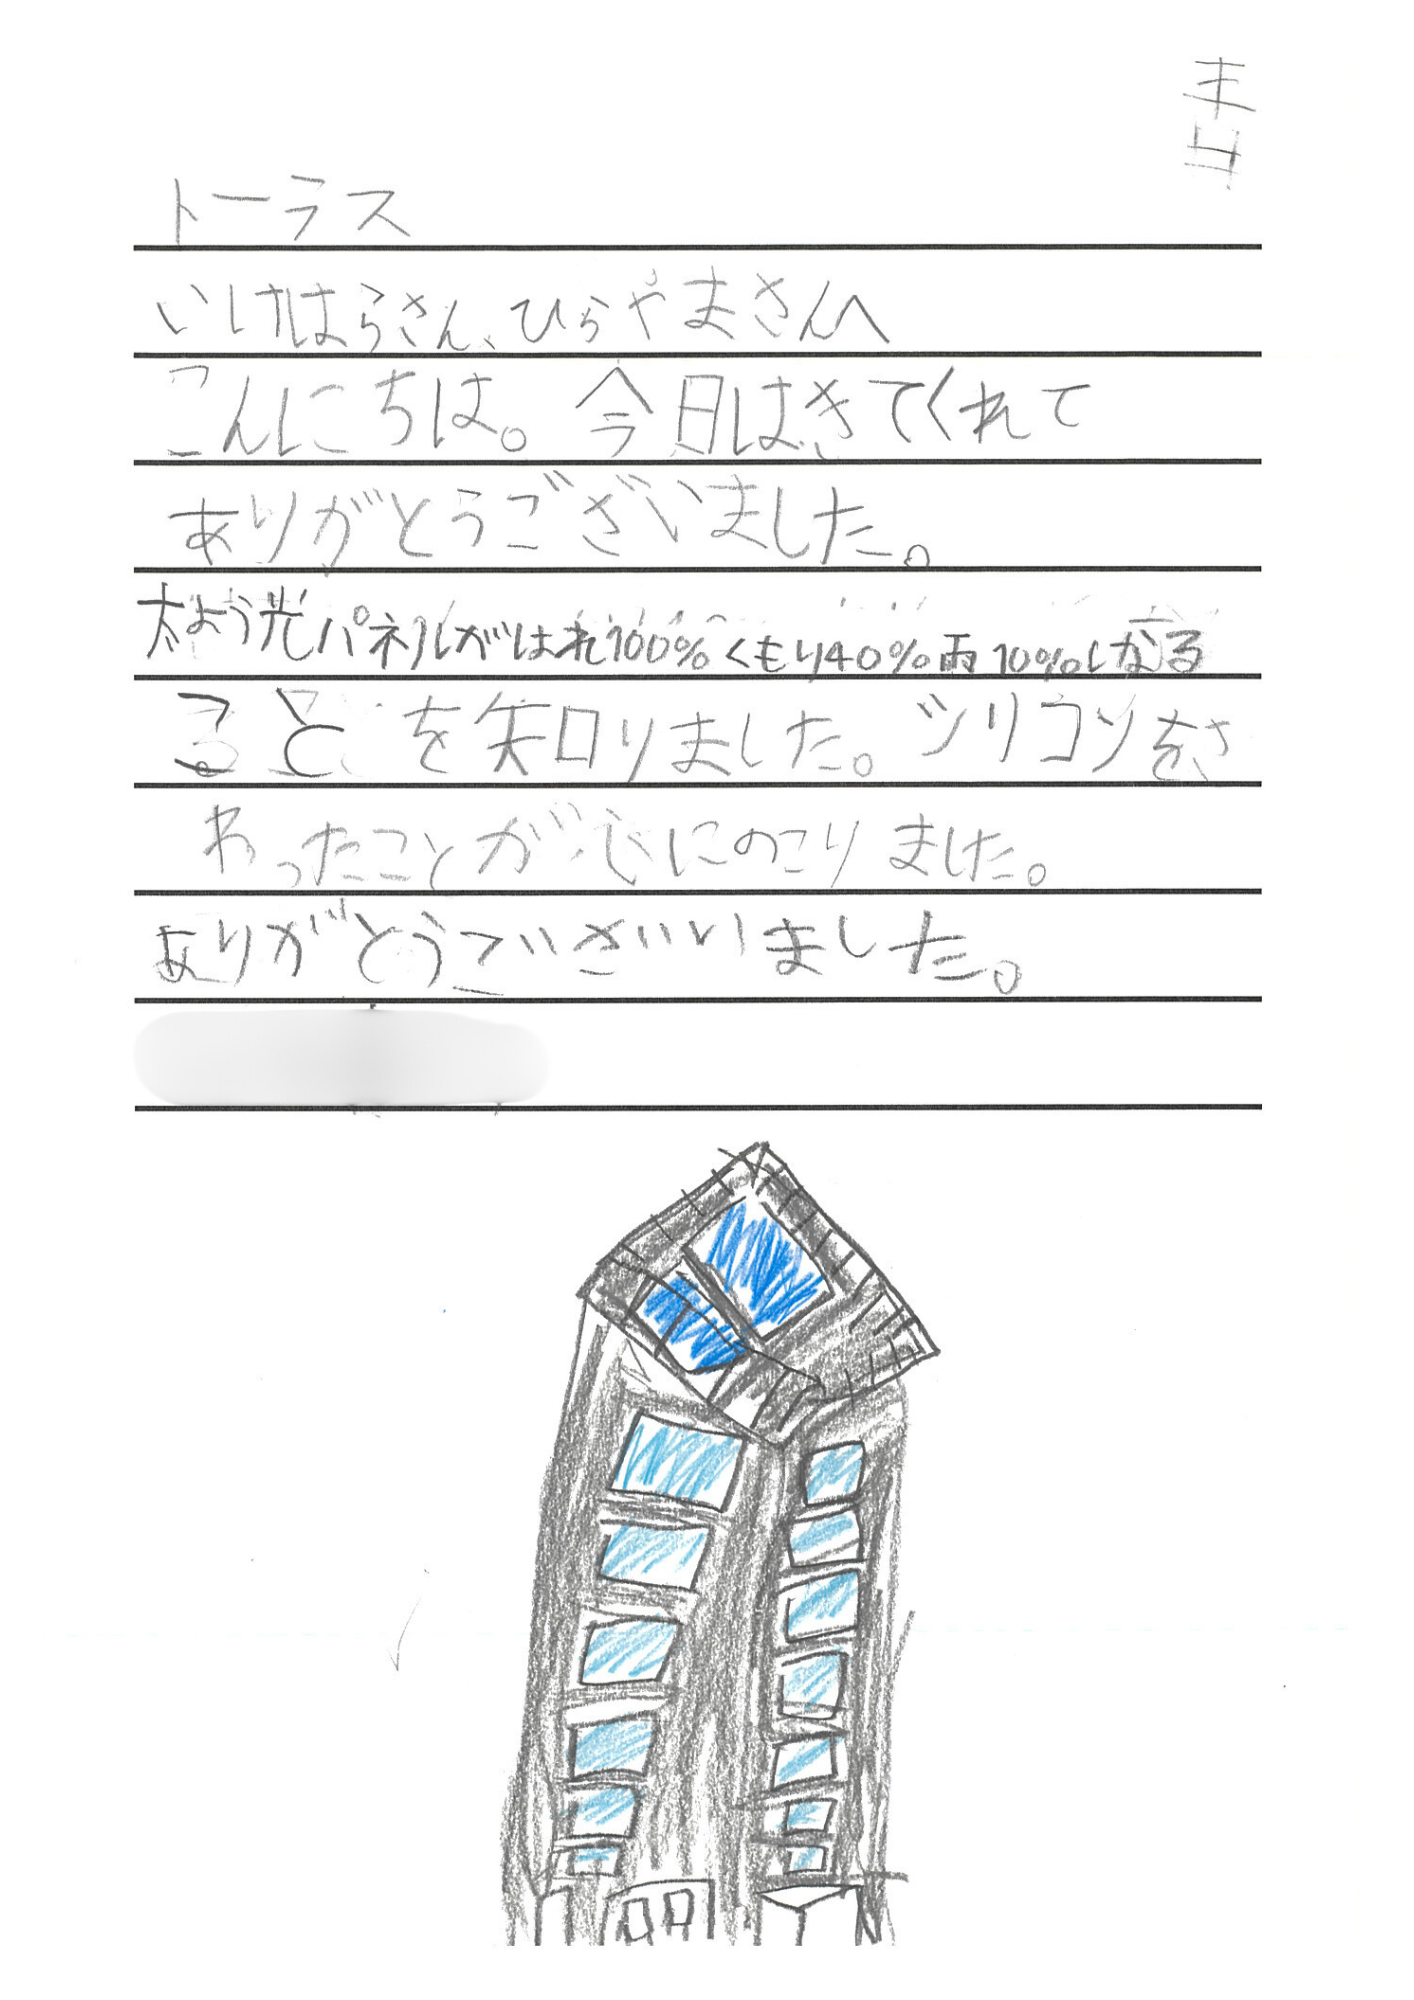 トーラス
いけはらさん、ひらやまさんへ
こんにちは。今日はきてくれて
ありがとうございました。
太よう光パネルがはれ100%くもり40%雨10%になる
ることを知りました。シリコンをさ
わったことが心にのこりました。
ありがとうございいました。